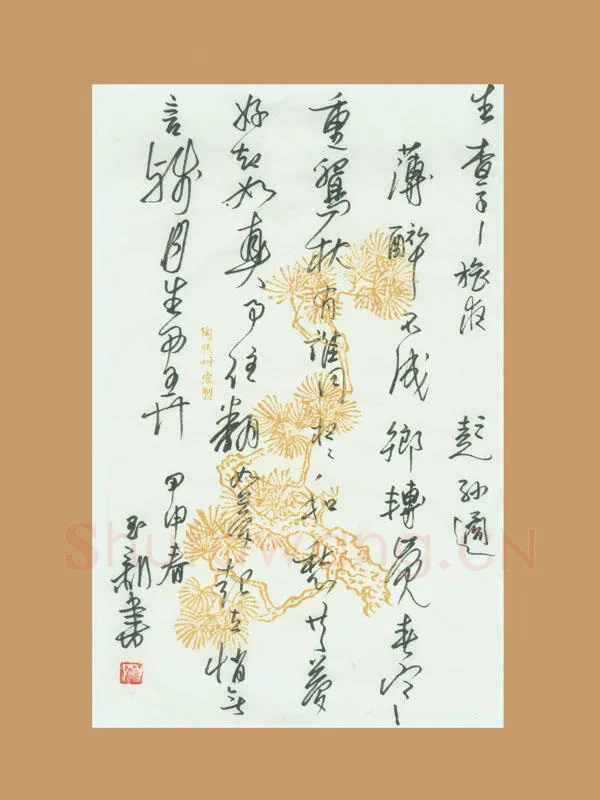 生查子—旅夜 彭孙遹
薄醉不成鄉轉覺春寒
重鴛枕有誰同夜夜和愁共夢
好却如真事往翻如夢起立悄無
言殘月生西弄 甲申春
Shufawang.CN